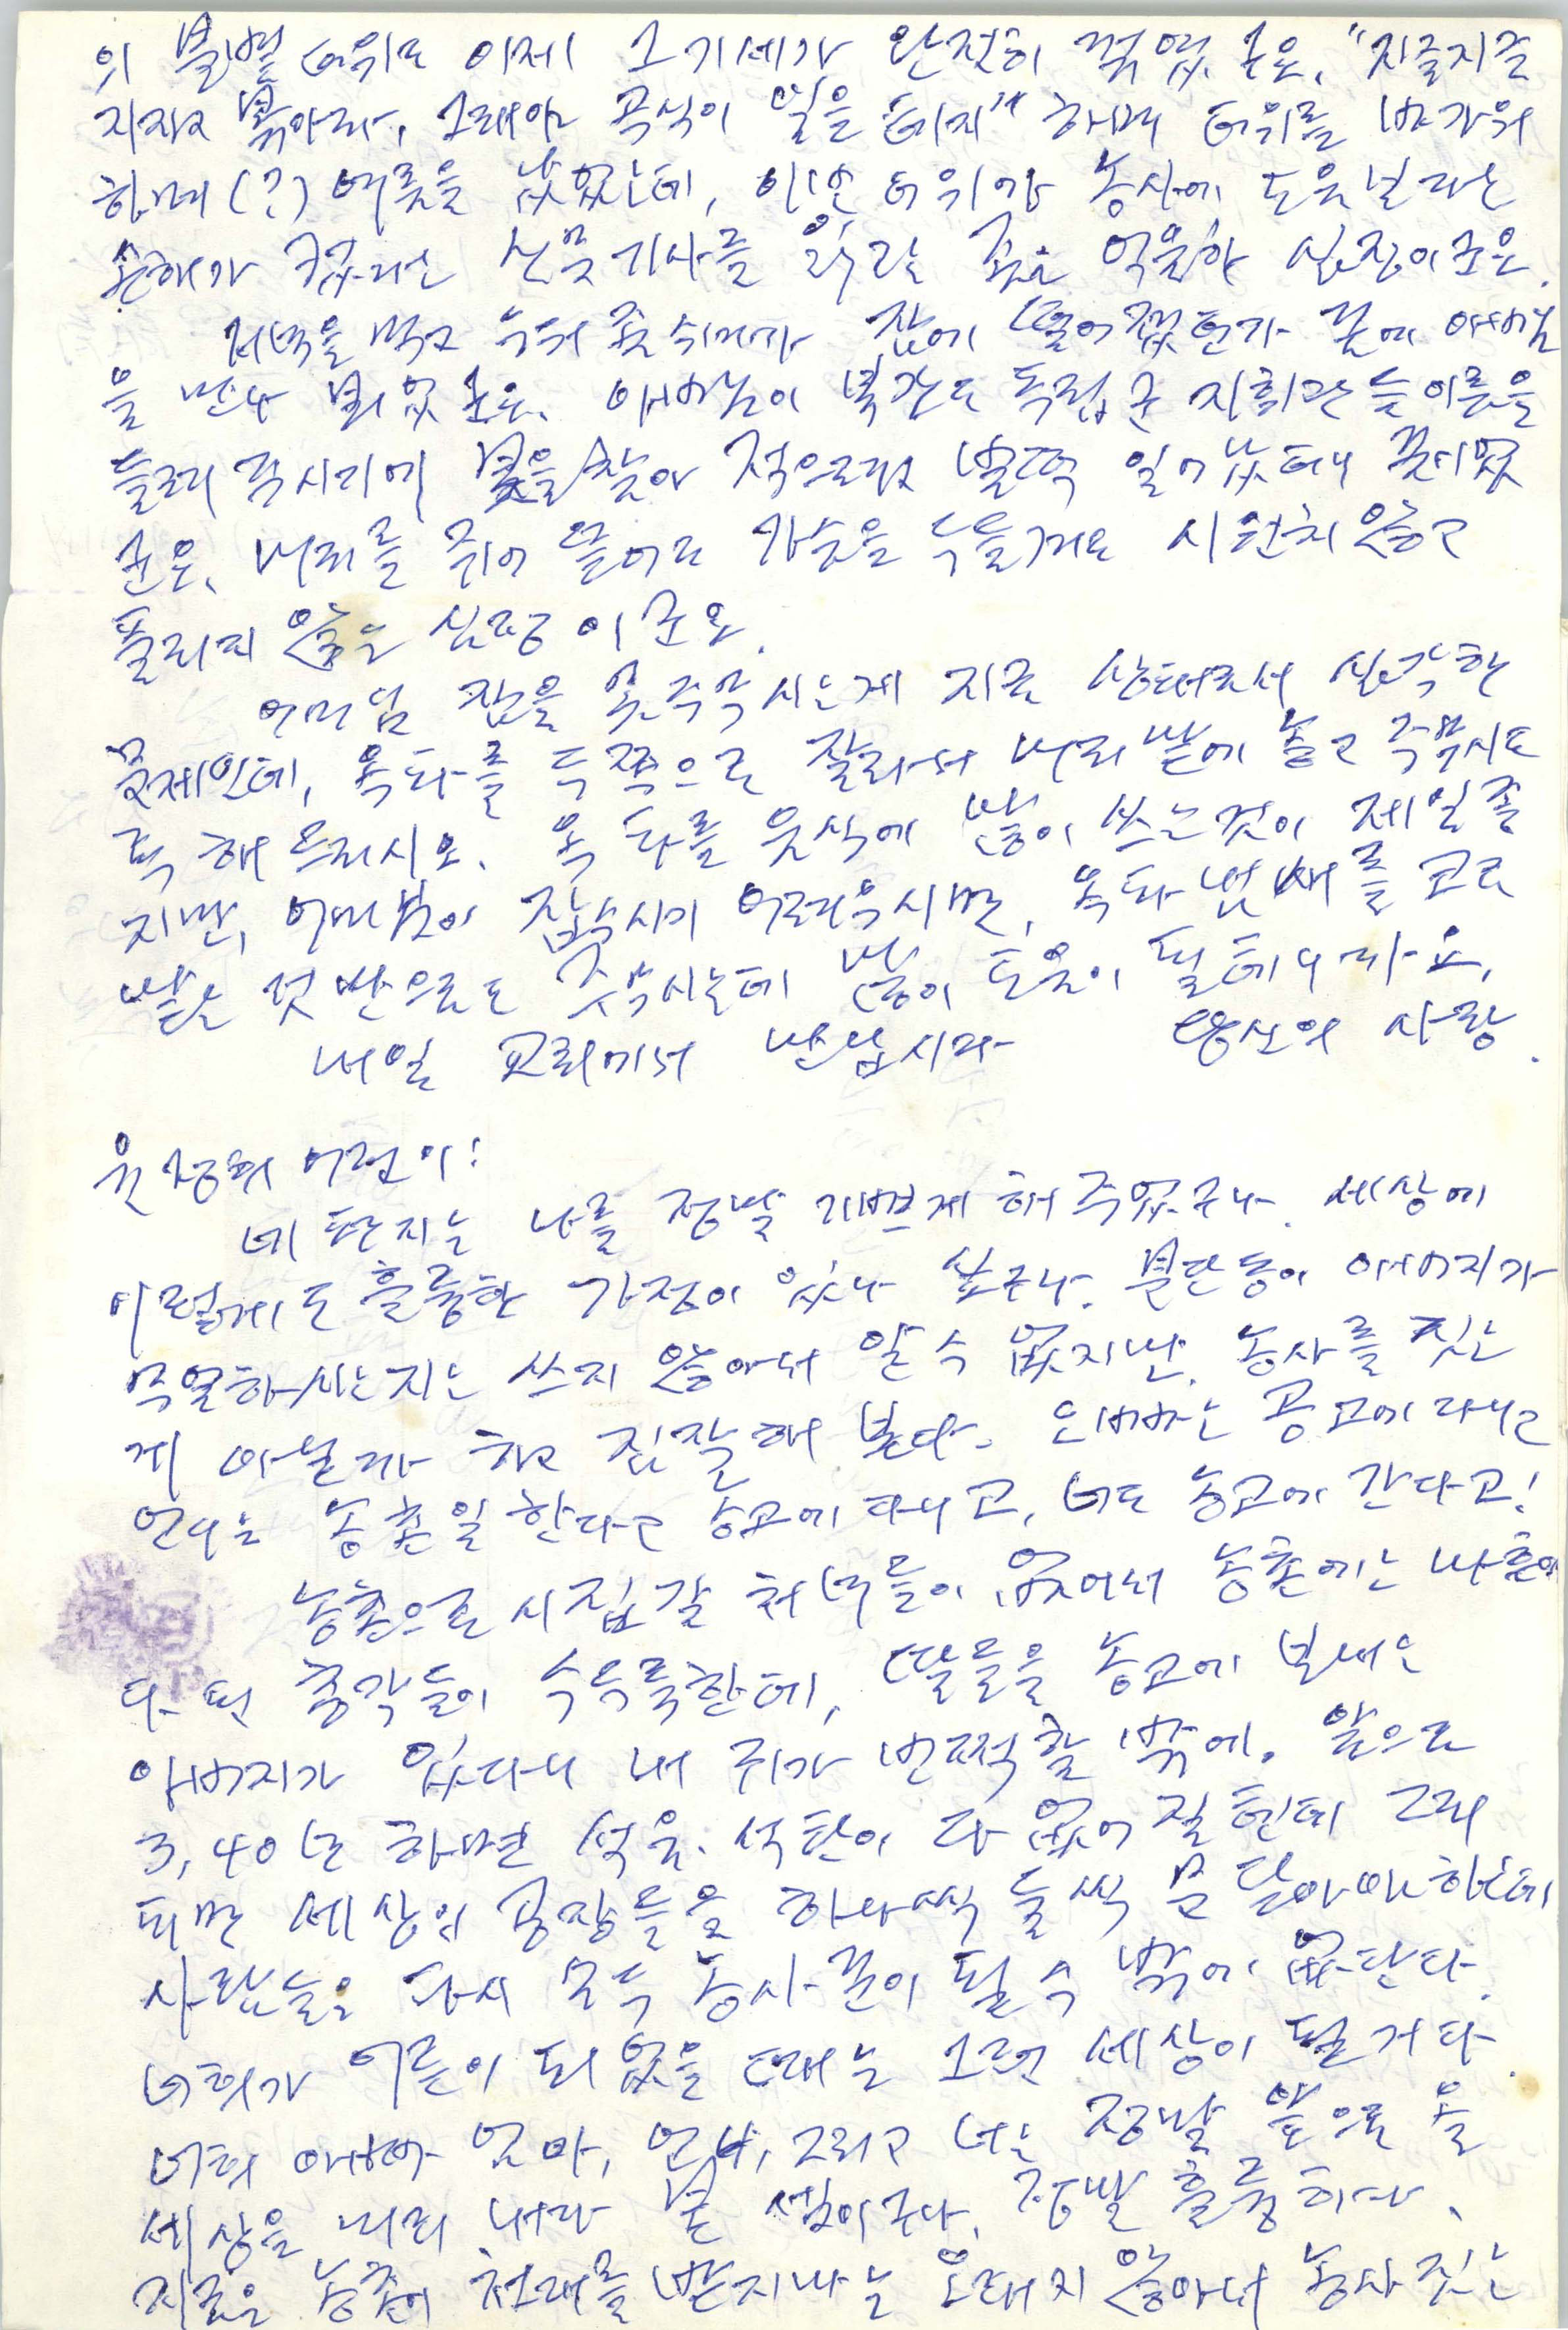 의 불볕 더위도 이제 그 기세가 완전히 꺾였군요. "지글지글
지지고 볶아라, 그래야 곡식이 익을 테지" 하며 더위를 반가워
하며(?) 여름을 났었는데, 이번 더위가 농사에 도움보다는
손해가 컸다는 신문기사를 읽고는 좀 억울한 심정이군요.
저녁을 먹고 누워 좀 쉬다가 잠에 떨어졌던가 꿈에 아버님
을 만나 뵈었군요. 아버님이 북간도 독립군 지휘관들 이름을
들려 주시기에 붓을 찾아 적으려고 벌떡 일어났더니 꿈이었
군요. 머리를 쥐어 뜯어도 가슴을 두들겨도 시원치 않고
풀리지 않는 심정이군요.
어머님 잠을 못 주무시는게 지금 상태로서 심각한
문제인데, 양파를 두쪽으로 잘라서 머리맡에 놓고 주무시도
록 해 드리시오. 양파를 음식에 많이 쓰는 것이 제일 좋
지만, 어머님이 잡수시기 어려우시면, 양파 냄새를 코로
맡는 것만으로도 주무시는데 많이 도움이 될테니까요.
내일 교회에서 만납시다 당신의 사랑.
윤정희 어린이!
네 편지는 나를 정말 기쁘게 해 주었구나. 세상에
이렇게도 훌륭한 가정이 있나 싶구나. 아버지가
무얼하시는지는 쓰지 않아서 알 수 없지만, 농사를 짓는
게 아닐까 하고 짐작해 본다. 오빠는 공고에 다니고
언니는 농촌일 한다고 농고에 다니고, 너도 농고에 간다고!
농촌으로 시집갈 처녀들이 없어서 농촌에는 나이
총각들이 수두룩한데, 딸들을 농고에 보내는
아버지가 있다니 내 귀가 번쩍할 밖에. 앞으로
3, 40년 하면 석유. 석탄이 다 없어질텐데 그리
되면 세상의 공장들은 하나씩 둘씩 문 닫아야 하는데
사람들은 다시 모두 농사꾼이 될 수 밖에 없단다.
너희가 어른이 되었을 때는 그런 세상이 될 거다.
너희 아빠 엄마, 언니, 그리고 너는 정말 앞으로 올
세상을 미리 내다 본 셈이구나. 정말 훌륭하다.
지금은 농촌이 천대를 받지마는 오래지 않아서 농사 짓는